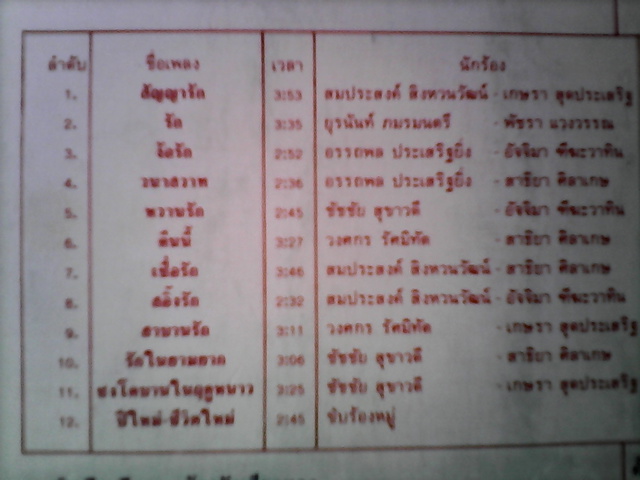 ลำดับ ชื่อเพลง เวลา นักร้อง
1. สัญญารัก 3:53 สมประสงค์ สิงหวนวัฒน์ - เกษรา สุดประเสริฐ
2. รัก 3:35 ยุรนันท์ ภมรมนตรี - พัชรา แวงวรรณ
3. ง้อรัก 2:52 อรรถพล ประเสริฐยิ่ง - อัจจิมา
4. วนาสวาท 2:36 อรรถพล ประเสริฐยิ่ง - สาธิยา ศิลาเกษ
5. หวานรัก 2:45 ชัชชัย สุขาวดี - อัจจิมา
6. คืนนี้ 3:27 วงศกร รัศมิทัต - สาธิยา ศิลาเกษ
7. เชื่อรัก 3:46 สมประสงค์ สิงหวนวัฒน์ - สาธิยา ศิลาเกษ
8. สลิ้งรัก 2:32 สมประสงค์ สิงหวนวัฒน์ - อัจจิมา
9. สาบานรัก 3:11 วงศกร รัศมิทัต - เกษรา สุดประเสริฐ
10. รักในยามยาก 3:06 ชัชชัย สุขาวดี - สาธิยา ศิลาเกษ
11. 3:25 ชัชชัย สุขาวดี - เกษรา สุดประเสริฐ
12. ปีใหม่-ชีวิตใหม่ 2:45 ขับร้องหมู่